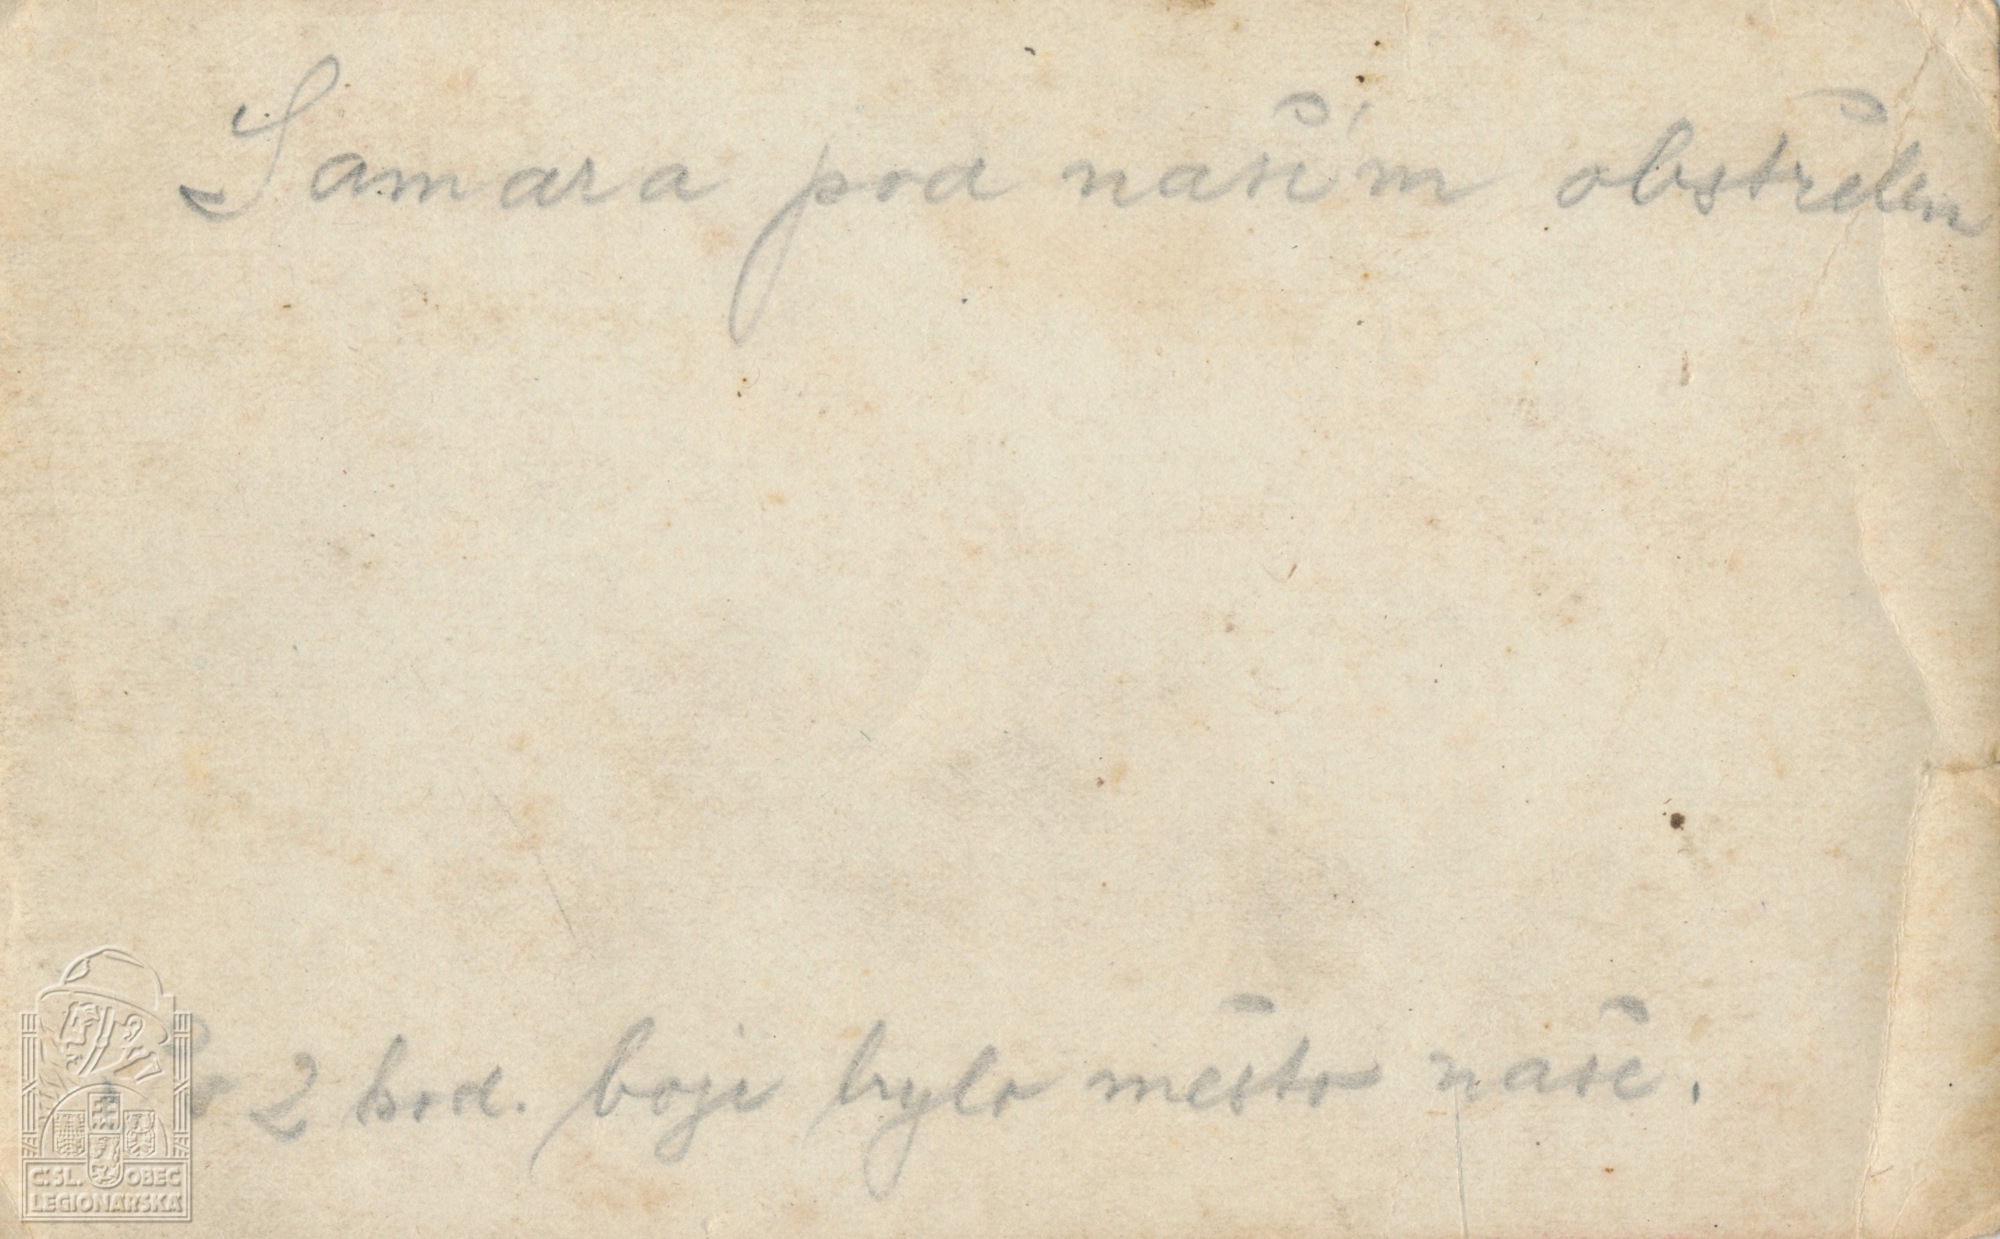 Samara pod naším obstřelem
Po 2 hod. boje bylo město naše.
Č.SL. OBEC
LEGIONÁŘSKÁ